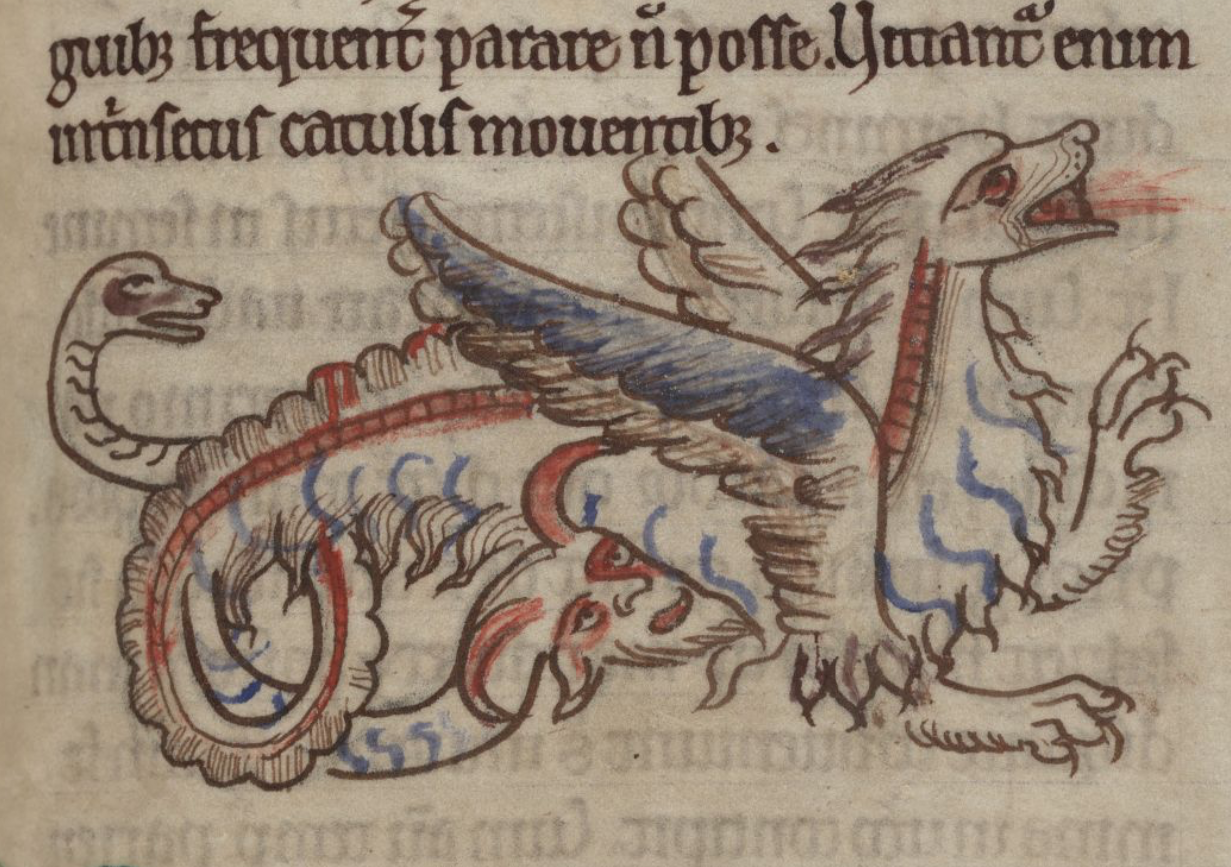 guibꝫ frequent᷑ parare n̄ posse. Uitiant᷑ enim
int̾nsecus catulis mouentibꝫ.